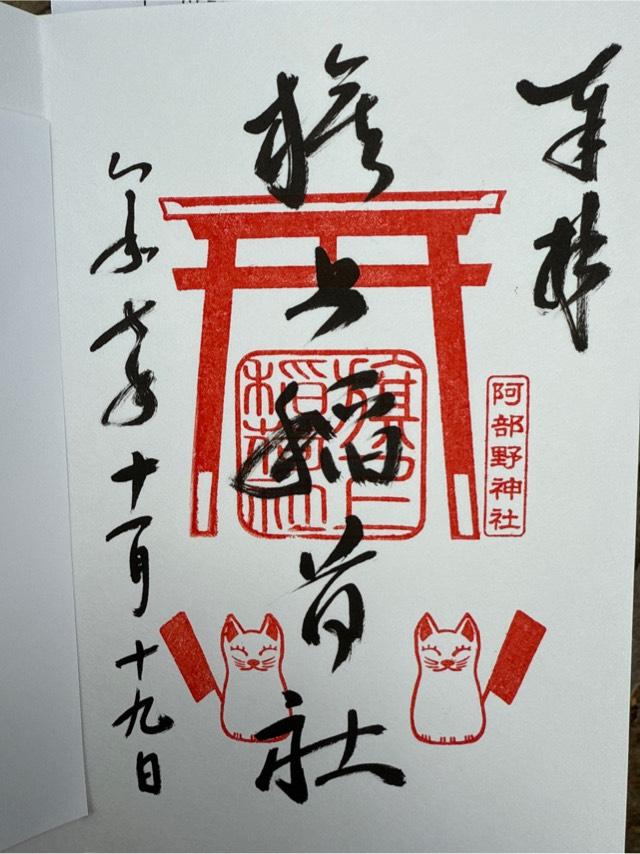 奉拝
旗上稲荷社
旗上
稲荷社
阿部野神社
令和七年十一月十九日